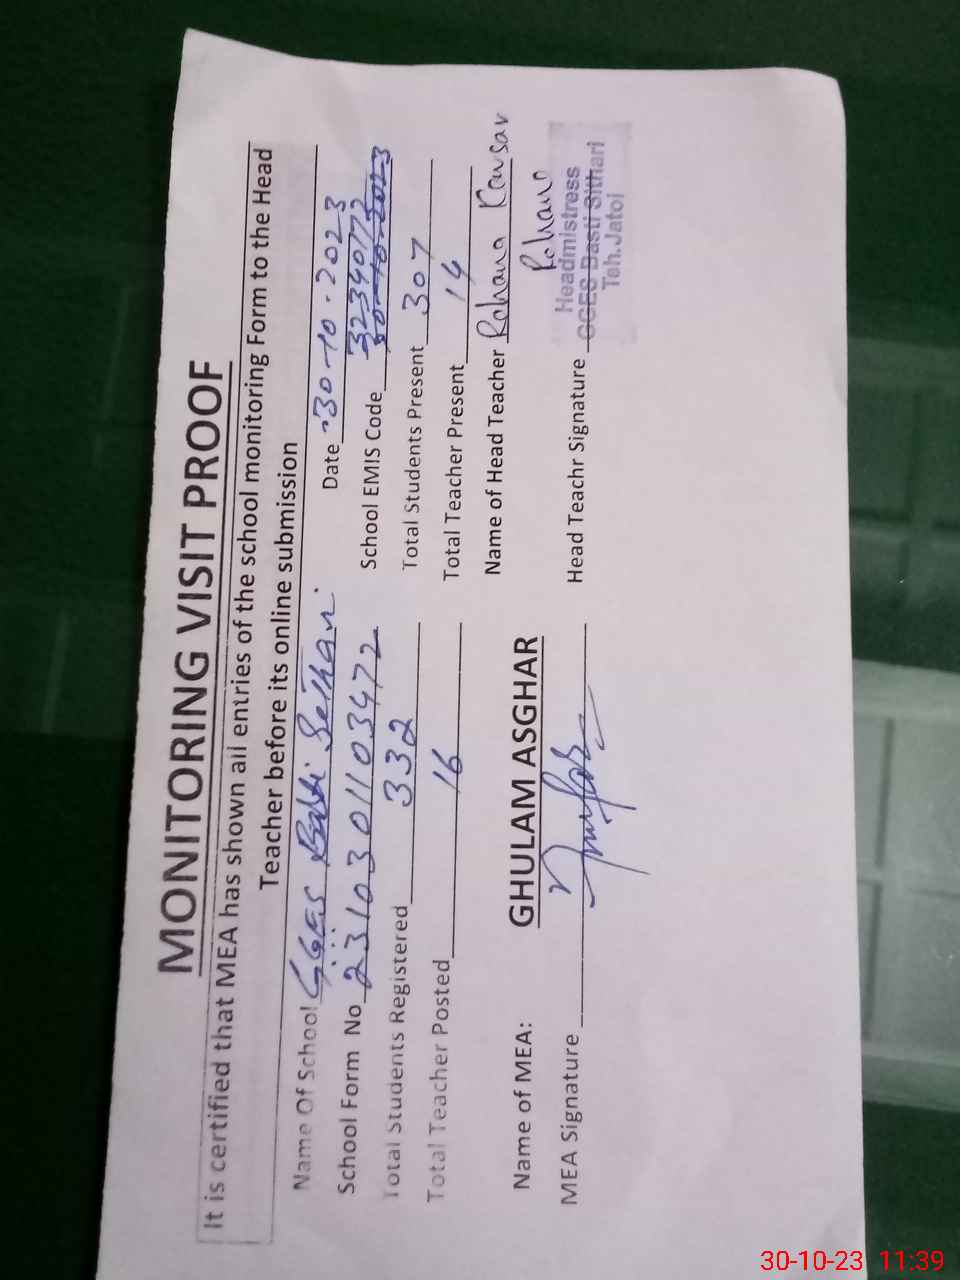 MONITORING VISIT PROOF
It is certified that MEA has shown all entries of the school monitoring Form to the Head
Teacher before its online submission
Name Of School GGES Basti Sethari Date 30-10-2023
School Form No 2310301103472 School EMIS Code 32340172 30-10-2023
Total Students Registered 332 Total Students Present 307
Total Teacher Posted 16 Total Teacher Present 14
Name of Head Teacher Rahana Kousar
Name of MEA: GHULAM ASGHAR
Rahana
MEA Signature Head Teachr Signature
Headmistress
GGES Basti Sithari
Teh.Jatoi
30-10-23 11:39